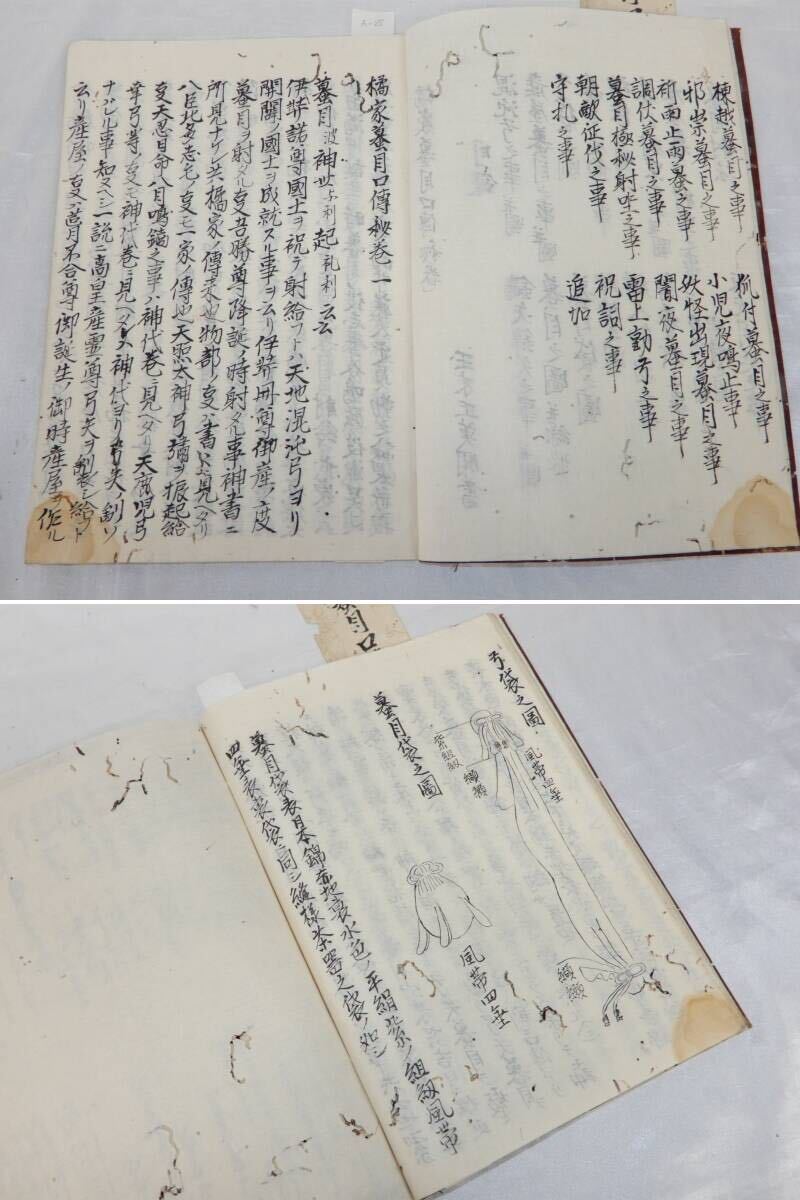 棟越蟇目之事
邪祟蟇目之事
祈雨止雨蟇之事
調伏蟇目之事
蟇目極秘射咋之事
朝敵征伐之事
守札之事
狐付蟇目之事
小児夜鳴止事
妖怪出現蟇目之事
闇夜蟇目之事
雷上動弓之事
祝詞之事
追加
橘家蟇目口傳秘巻一
蟇目波神世与利起礼利云云
伊弉諾尊國土ヲ祝テ射給フトハ天地混沌弓ヨリ
開闢ノ國土ヲ成就スル事ヲ云リ伊弉冊尊御産ノ度
蟇目ヲ射タル事吾勝尊降誕ノ時射タル事神書ニ
所見ナケレ共橘家ノ傳来也物部ノ事ハ書ニ見ヘタリ
八臣比多志毛ノ事モ一家ノ傳也天照太神弓彇ヲ振起給
事天忍日命八目鳴鏑之事ハ神代巻ニ見ヘタリ天鹿児弓
幸弓等ノ事モ神代巻ニ見ヘタ神代ヨリ弓矢ノ制ソ
ナハレル事知ヌヘシ一説ニ高皇産霊尊弓矢ヲ製シ給フト
云リ産屋ノ事ハ葺不合尊御誕生ノ御時産屋ヲ作ル
弓袋之圖
風帯四垂
紫組緞
蟇目袋之圖
風帯四垂
蟇目袋表日本錦赤地裏水色ノ平絹紫ノ組緞風帯
四垂衣裏袋ニ同シ縫様茶器之袋ノ如シ
蟇目口